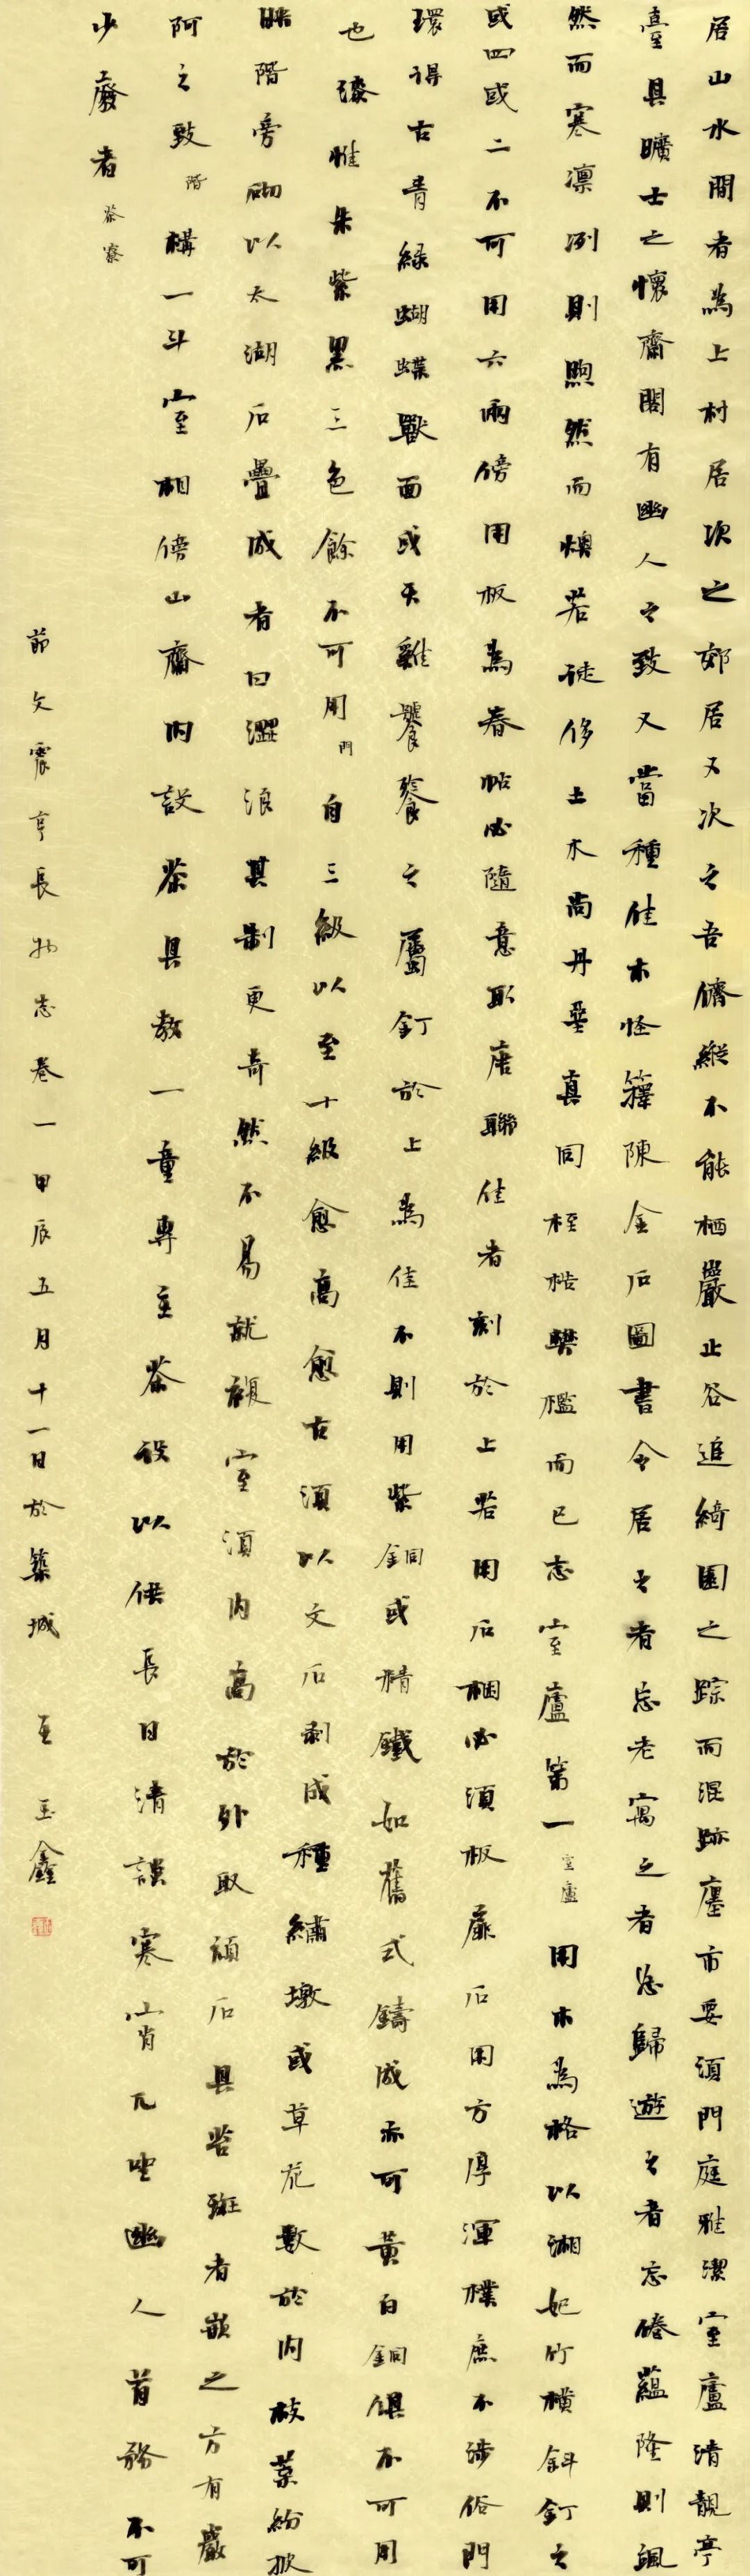 居山水間者為上村居次之郊居又次之吾儕縱不能栖巖止谷追綺園之踪而混跡廛市要須門庭雅潔室廬清靚亭
臺具曠士之懷齋閣有幽人之致又當種佳木怪籜陳金石圖書令居之者忘老寓之者忘歸遊之者忘倦蘊隆則颯
然而寒凛冽則煦然而燠若徒侈土木尚丹堊真同桎梏樊檻而已志室廬第一室廬用木為格以湘妃竹橫斜釘之
或四或二不可用六兩傍用板為春帖必隨意取唐聯佳者刻於上若用石梱必須板扉石用方厚渾樸庶不涉俗門
環得古青綠蝴蝶獸面或天雞饕餮之屬釘於上為佳不則用紫銅或精鐵如舊式鑄成亦可黃白銅俱不可用
也漆惟朱紫黑三色餘不可用門自三級以至十級愈高愈古須以文石剥成種繡墩或草花數於內枝葉紛披
映階旁砌以太湖石疊成者曰澀浪其制更奇然不易就複室須內高於外取頑石具苔斑者嵌之方有巖
阿之致階構一斗室相傍山齋內設茶具教一童專主茶設以供長日清談寒宵兀坐幽人首務不可
少廢者茶寮
節文震亨長物志卷一甲辰五月十一日於築城 王玉鑫